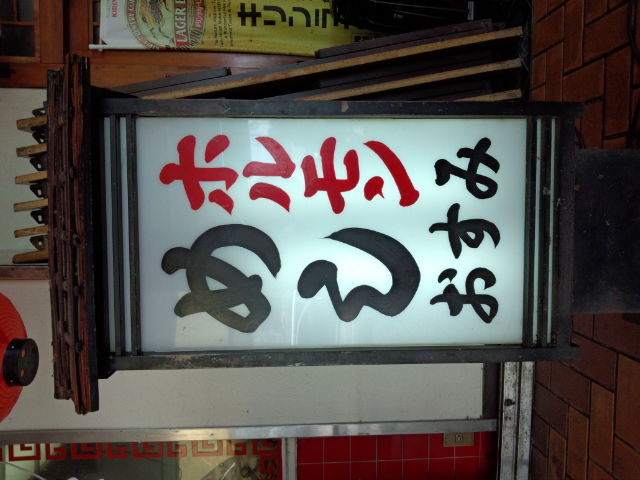 ホルモン
めし
おすみ
KIRIN
LAGER
BEER
キリンラ